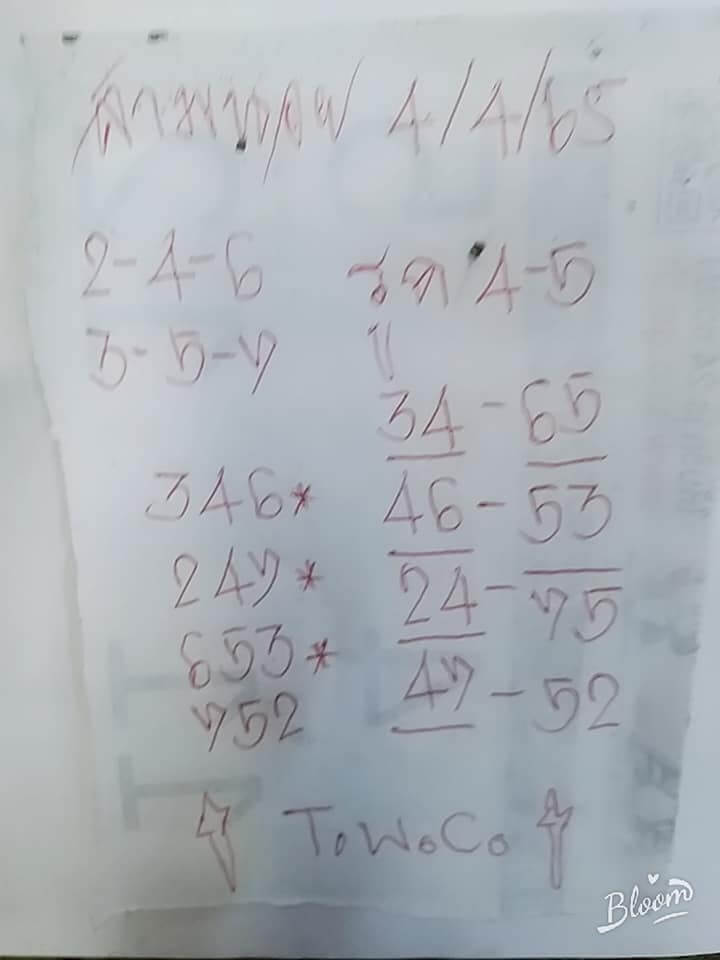 สามทอย 4/4/65
2-4-6 รูด 4-5
3-5-7 "
34-65
346* 46-53
247* 24-75
653* 47-52
752
ToWoCo
Bloom